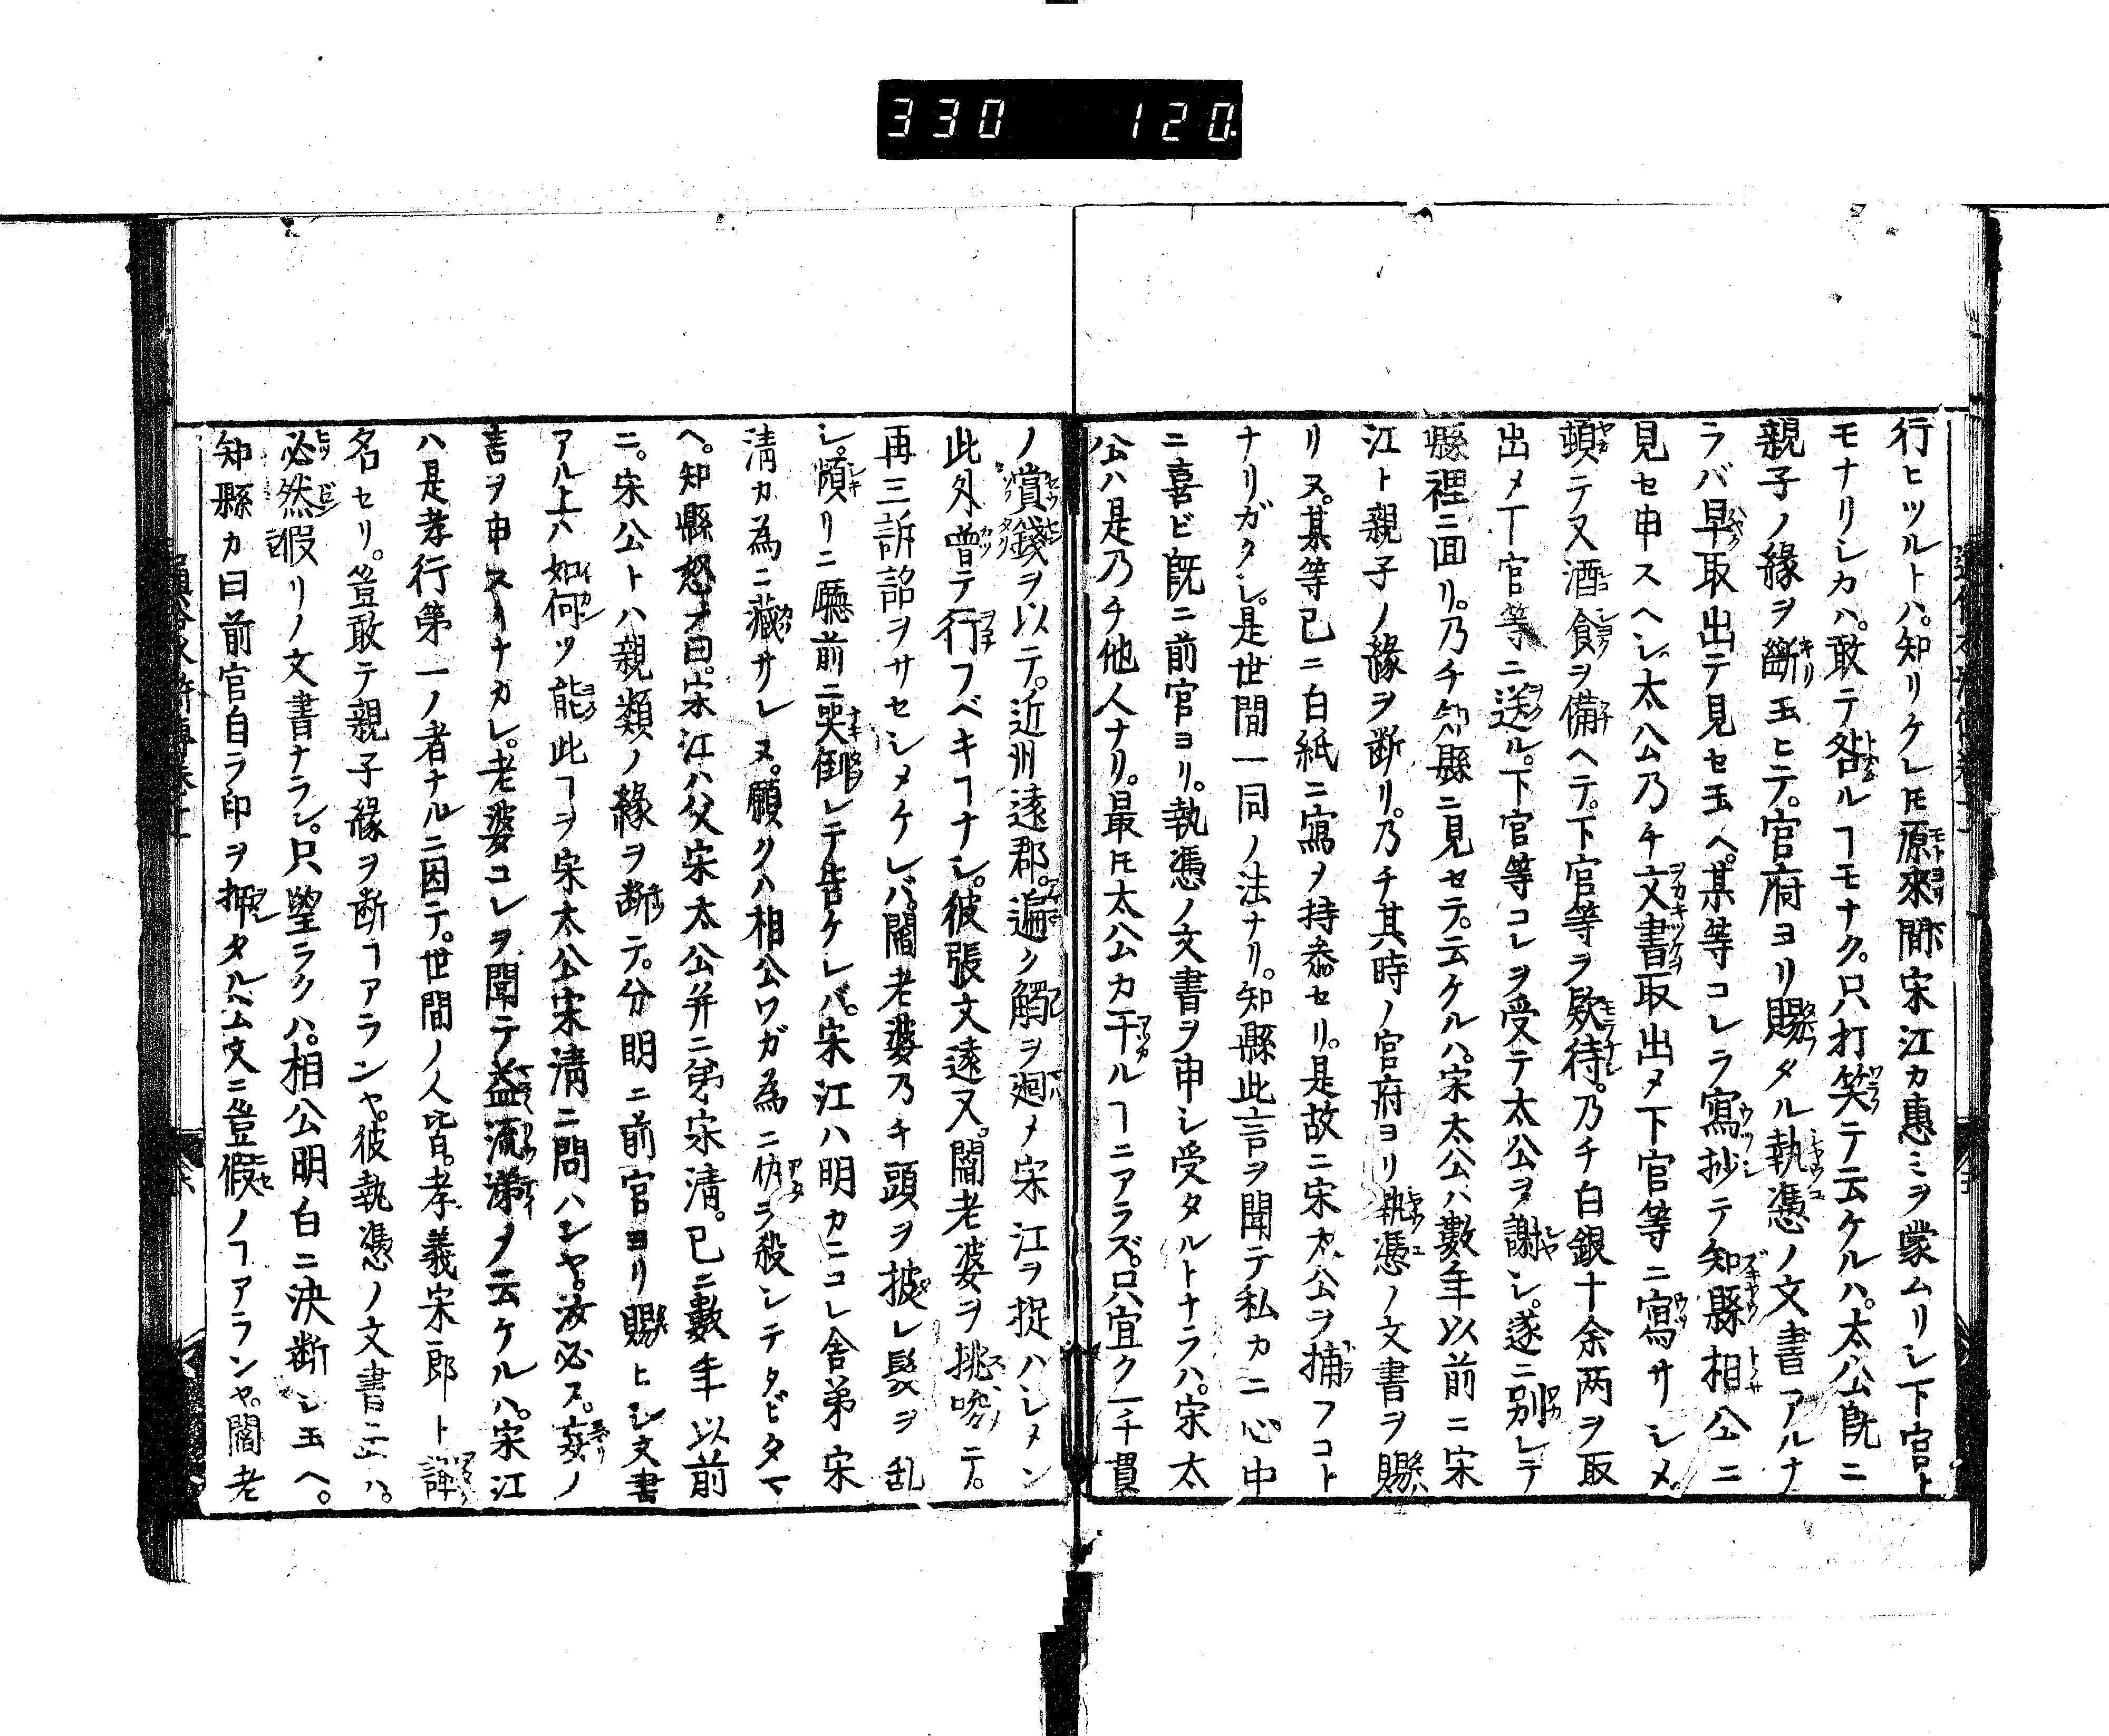 330 120.
行ヒツルトハ。知リケレ𪜈原來間宋江カ惠ミヲ蒙ムリシ下官ト
モナリシカハ。敢テ咎ルヿモナク。只打笑テ云ケルハ。太公既ニ
親子ノ緣ヲ斷玉ヒテ。官府ヨリ賜タル執憑ノ文書アルナ
ラバ早取出テ見セ玉ヘ。某等コレヲ寫抄テ知縣相公ニ
見セ申スヘシ。太公乃チ文書取出メ下官等ニ寫サシメ。
頓テ又酒食ヲ備ヘテ。下官等ヲ欵待。乃チ白銀十余两ヲ取
出メ下官等ニ送ル。下官等コレヲ受テ太公ヲ謝シ。遂ニ別レテ
縣裡ニ囬リ。乃チ知縣ニ見セテ。云ケルハ。宋太公ハ數年以前ニ宋
江ト親子ノ緣ヲ断リ。乃チ其時ノ官府ヨリ執憑ノ文書ヲ賜
リヌ。某等已ニ白紙ニ寫メ持叅セリ。是故ニ宋太公ヲ捕フコト
ナリガタシ。是世間一同ノ法ナリ。知縣此言ヲ聞テ私カニ心中
ニ喜ビ既ニ前官ヨリ。執憑ノ文書ヲ申シ受タルトナラハ。宋太
公ハ是乃チ他人ナリ。最𪜈太公カ干ルヿニアラズ。只宜ク一千貫
ノ賞錢ヲ以テ。近州遠郡。遍ク觸ヲ廻メ宋江ヲ捉ハシメン
此外曽テ行フベキヿナシ。彼張文遠又。閻老婆ヲ挑唆ニテ。
再三訴詔ヲサセシメケレバ。閻老婆乃チ頭ヲ披レ髮ヲ乱
シ。頻リニ廳前ニ哭倒レテ告ケレバ。宋江ハ明カニコレ舎弟宋
淸カ為ニ藏サレヌ。願クハ相公ワガ為ニ仇ヲ殺シテタビタマ
ヘ。知縣怒テ曰。宋江ハ父宋太公并ニ弟宋淸。已ニ數年以前
ニ。宋公トハ親類ノ緣ヲ断テ。分明ニ前官ヨリ賜ヒシ文書
アル上ハ如何ツ能此ヿヲ宋太公宋淸ニ問ハンヤ。汝必ス。妄ノ
言ヲ申スヿナカレ。老婆コレヲ聞テ益流涕メ云ケルハ。宋江
ハ是孝行第一ノ者ナルニ因テ。世間ノ人皆。孝義宋三郎ト諢
名セリ。豈敢テ親子緣ヲ断ヿアランヤ。彼執憑ノ文書ニハ。
必然假リノ文書ナラン。只望ラクハ。相公明白ニ決断シ玉ヘ。
知縣カ曰前官自ラ印ヲ押タル公文ニ豈假ノヿアランヤ。閻老